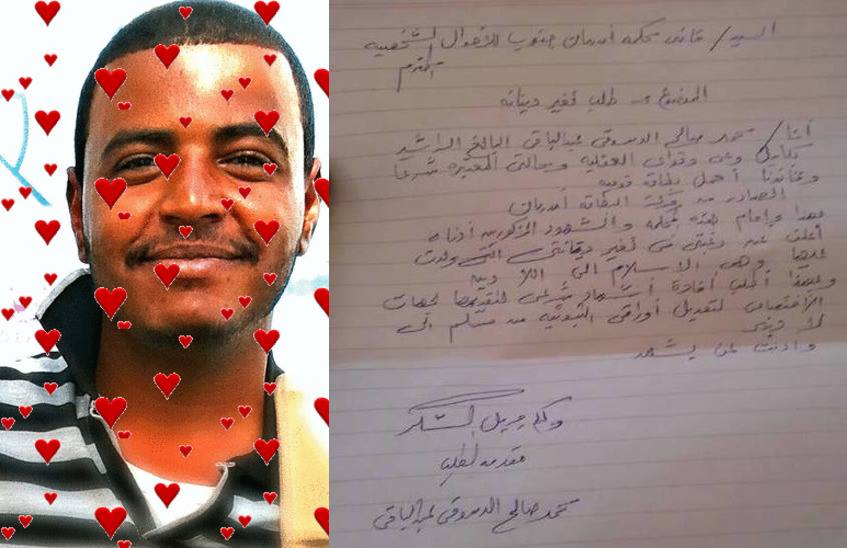 السيد / قاضي محكمة أمدرمان جنوب للأحوال الشخصية
المقدم
الموضوع :- طلب تغير ديانة
أنا / محمد صالح الدسوقي عبدالباقي البالغ الراشد
بكامل وعي وقواي العقلية وبحالتي المعتبره شرعا
وقانونا أحمل بطاقة قومية
الصادر من البطاقة أمدرمان
بهذا وإمام هيئة محكمة والشهود المذكورين أدناه
أعلن عن رغبتي في تغير ديانتي التي ولدت
عليها وهي الاسلام الى اللا دينية
وعليه أطلب أفادة أشهاد شرعي لتقديمها لجهات
الأختصاص لتعديل أوراقي الثبوتية من مسلم الى
لا ديني
وأدنت لمن يشهد
ولكم جزيل الشكر
مقدمه لطلب
محمد صالح الدسوقي عبدالباقي